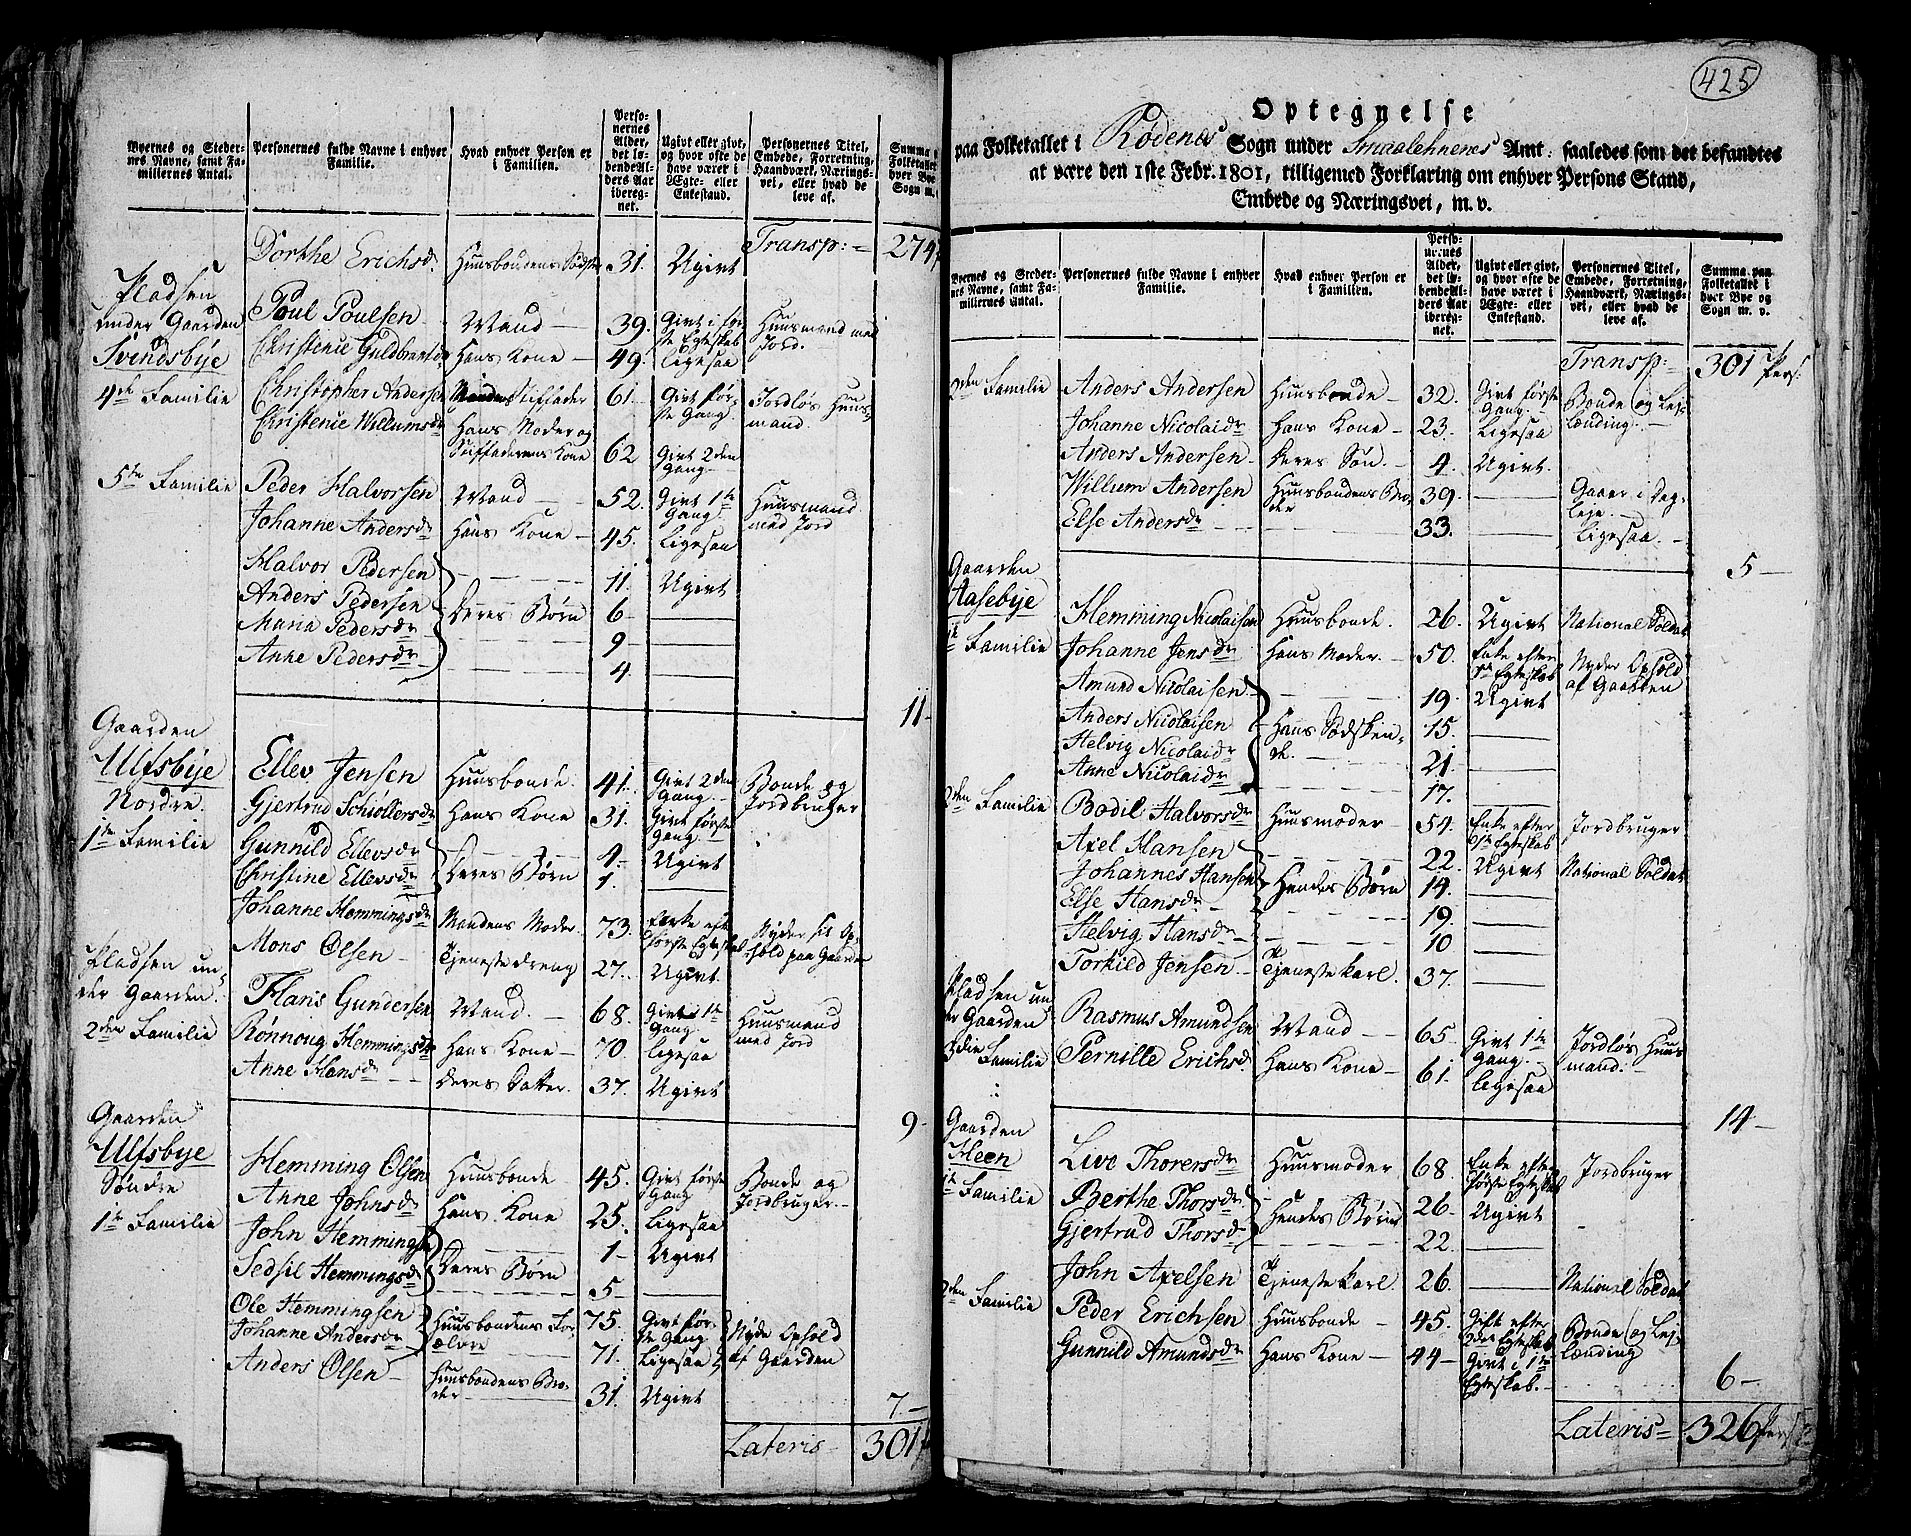 Byernes og Stedernes Navne, samt Familiernes Antal.
Personernes fulde Navne i enhver Familie.
Hvad enhver Person er i Familien.
Personernes Alder, det løbende Alders Aar iberegnet.
Ugivt eller givt, og hvor ofte de have været i Ægte- eller Enkestand.
Personernes Titel, Embede, Forretning, Haandværk, Næringsvei, eller hvad de leve af.
Summa Folketallet hver Bye Sogn m.
Transp:= 274
Dorthe Erichsd. Huusbondens Sødster 31. Ugivt
Pladsen under Gaarden Svindsbye
Poul Poulsen Mand 39. Givt i første Egteskab Huusmand med Jord.
Christenie Guldbrandsdr Hans Kone 49. Ligesaa
4de Familie Christopher Andersen Mandens Stiffader 61 Givt første Gang. Jordløs Huusmand
Christenie Willumsdr Hans Moder og Stiffaderens Kone 62 Givt 2den Gang
5te Familie Peder Halvorsen Mand 52. Givt 1te Gang Huusmand med Jord
Johanne Andersdr Hans Kone 45. Ligesaa
Halvor Pedersen 11. Ugivt
Anders Pedersen Deres Børn 6
Maria Pedersdr 9
Anne Pedersdr 4
11
Gaarden Ulfsbye Nordre.
1te Familie
Ellev Jensen Huusbonde 41. Givt 2den Gang Bonde og Jordbruger
Gjertrud Schiøllersdr Hans Kone 31. Givt første Gang
Gunnild Ellevsdr 4 Ugivt
Christine Ellevsdr Deres Børn 1.
Johanne Hemmingsdr Mandens Moder. 73. Enke eft første Egteskab Nyder sit Ophold paa Gaarden
Mons Olsen Tjenestedreng 27. Ugivt
Pladsen under Gaarden.
2den Familie
Hans Gundersen Mand. 68. Givt 1te Gang Huusmand med Jord
Rønnoug Hemmingsdr Hans Kone 70. Ligesaa
Anne Hansdr Deres Datter. 37. Ugivt
9
Gaarden Ulfsbye Søndre
1te Familie
Hemming Olsen Huusbonde 45. Givt første Gang Bonde og Jordbruger
Anne Johnsdr Hans Kone 25. Ligesaa
John Hemmingsen 1 Ugivt
Sedsil Hemmingsdr Deres Børn 5
Ole Hemmingsen Huusbondens Forælvre 75. Givt første Gang Nyde Ophold af Gaarden
Johanne Andersdr 71. Ligesaa
Anders Olsen Huusbondens Broder 31. Ugivt
7
Lateris 301
425
Optegnelse
paa Folketallet i Rødenæs Sogn under Smaalehnenes Amt: saaledes som det befandtes
at være den 1ste Febr. 1801, tilligemed Forklaring om enhver Persons Stand,
Embede og Næringsvei, m. v.
Byernes og Stedernes Navne, samt Familiernes Antal.
Personernes fulde Navne i enhver Familie.
Hvad enhver Person er i Familien.
Personernes Alder, det løbende Alders Aar iberegnet.
Ugivt eller givt, og hvor ofte de have været i Ægte- eller Enkestand.
Personernes Titel, Embede, Forretning, Haandværk, Næringsvei, eller hvad de leve af.
Summa paa Folketallet i hver Bye og Sogn m. v.
Transp:= 301 Pers:
2den Familie Anders Andersen Huusbonde 32. Givt første Gang. Bonde og Lejlænding.
Johanne Nicolaidr Hans Kone 23. Ligesaa
Anders Andersen Deres Søn. 4. Ugivt.
Willum Andersen Huusbondens Broder 39. Gaaer i Dagleje.
Else Andersdr 33. Ligesaa.
5
Gaarden Aasebye
1te Familie
Hemming Nicolaisen Huusbonde. 26. Ugivt National Soldat
Johanne Jensdr Hans Moder. 50. Enke efter 1te Egteskab Nyder Ophold af Gaarden
Amund Nicolaisen 19. Ugivt
Anders Nicolaisen Hans Sødskende. 15.
Helvig Nicolaidr 21
Anne Nicolaidr 17.
2den Familie Bodil Halvorsdr Huusmoder 54. Enke efter 1ste Egteskab Jordbruger
Axel Hansen 22. Ugivt National Soldat
Johannes Hansen Hendes Børn 14.
Else Hansdr 19.
Helvig Hansdr 10
Torkild Jensen Tjenestekarl. 37.
Pladsen under Gaarden
3die Familie
Rasmus Amundsen Mand 65. Givt 1te Gang. Jordløs Huusmand.
Pernille Erichsd. Hans Kone 61. Ligesaa
14
Gaarden Heen
1te Familie
Live Thorersdr Huusmoder 68. Enke efter første Egteskab Jordbruger
Berthe Thorsdr Hendes Børn 26. Ugivt
Gjertrud Thorsd. 22.
John Axelsen Tjenestekarl. 26. National Soldat
2den Familie Peder Erichsen Huusbonde 45. Gift efter 2det Egteskab Bonde og Lejlænding
Gunnild Amundsdr Hans Kone 44 Givt i 1te Egteskab.
6
Lateris= 326 Pers